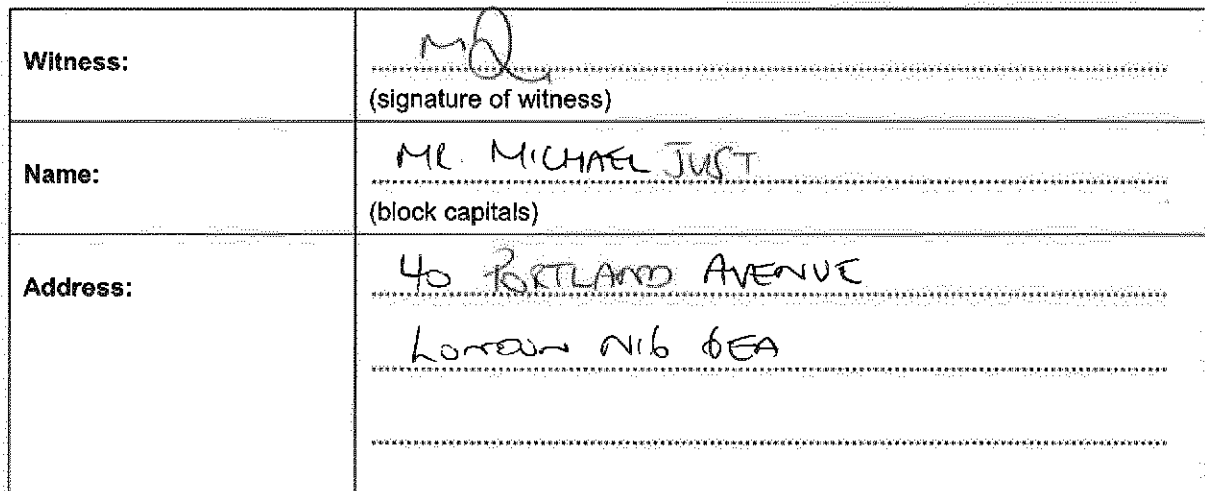 Witness:
(signature of witness)
Name:
MR. MICHAEL JUST
(block capitals)
Address:
40 PORTLAND AVENUE
LONDON N16 6EA